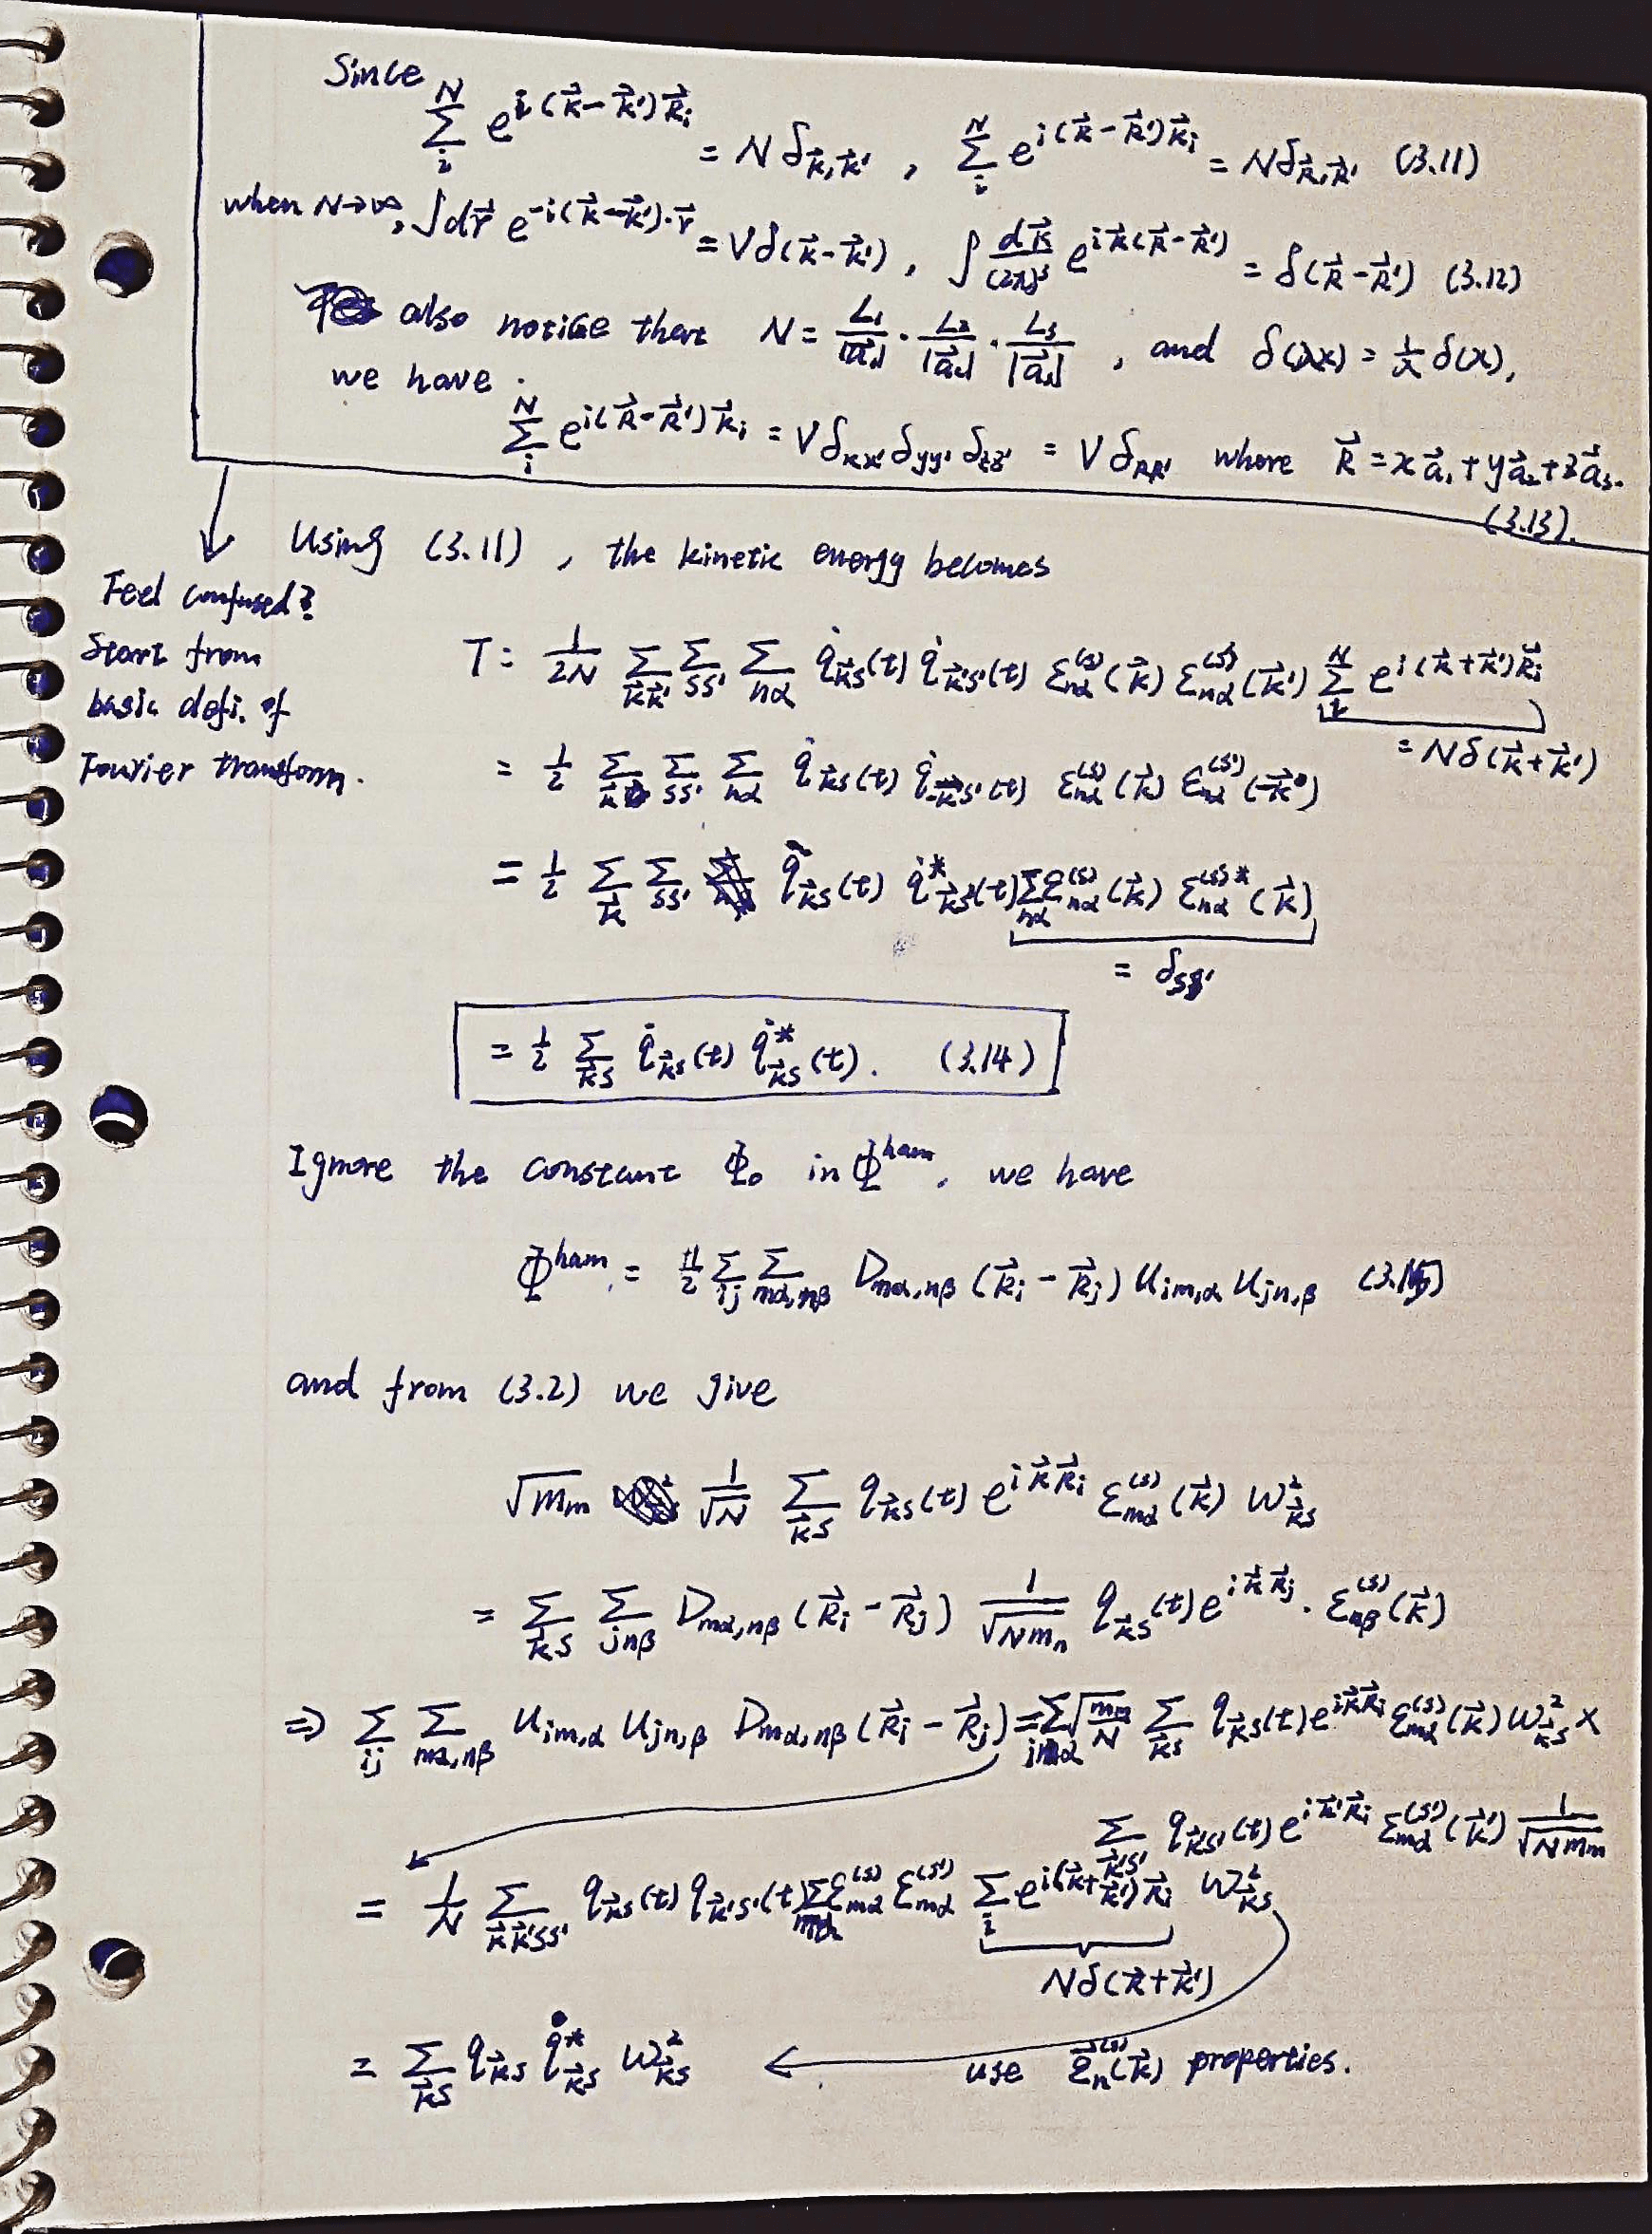 Since
$\sum_i^N e^{i(\vec{k}-\vec{k}')\vec{R}_i} = N\delta_{\vec{k},\vec{k}'}$ , $\sum_i^N e^{i(\vec{R}-\vec{R}')\vec{k}_i} = N\delta_{\vec{R},\vec{R}'}$ (3.11)
when N→∞, $\int d\vec{r}\, e^{-i(\vec{k}-\vec{k}')\cdot\vec{r}} = V\delta(\vec{k}-\vec{k}')$ , $\int \frac{d\vec{k}}{(2\pi)^3} e^{i\vec{k}(\vec{R}-\vec{R}')} = \delta(\vec{R}-\vec{R}')$ (3.12)
also notice that $N = \frac{L_1}{|\vec{a}_1|}\cdot\frac{L_2}{|\vec{a}_2|}\cdot\frac{L_3}{|\vec{a}_3|}$ , and $\delta(\lambda x) = \frac{1}{\lambda}\delta(x)$,
we have
$\sum_i^N e^{i(\vec{R}-\vec{R}')\vec{k}_i} = V\delta_{xx'}\delta_{yy'}\delta_{zz'} = V\delta_{RR'}$ where $\vec{R} = x\vec{a}_1+y\vec{a}_2+z\vec{a}_3$.
(3.13).
Using (3.11) , the kinetic energy becomes
Feel confused?
Start from
basic defi. of
Fourier transform.
$T = \frac{1}{2N}\sum_{\vec{k}\vec{k}'}\sum_{ss'}\sum_{n\alpha} \dot{q}_{\vec{k}s}(t)\dot{q}_{\vec{k}'s'}(t)\varepsilon_{n\alpha}^{(s)}(\vec{k})\varepsilon_{n\alpha}^{(s')}(\vec{k}')\sum_i^N e^{i(\vec{k}+\vec{k}')\vec{R}_i}$
$= N\delta(\vec{k}+\vec{k}')$
$= \frac{1}{2}\sum_{\vec{k}}\sum_{ss'}\sum_{n\alpha} \dot{q}_{\vec{k}s}(t)\dot{q}_{-\vec{k}s'}(t)\varepsilon_{n\alpha}^{(s)}(\vec{k})\varepsilon_{n\alpha}^{(s')}(-\vec{k})$
$= \frac{1}{2}\sum_{\vec{k}}\sum_{ss'} \dot{q}_{\vec{k}s}(t)\dot{q}^*_{\vec{k}s'}(t)\sum_{n\alpha}\varepsilon_{n\alpha}^{(s)}(\vec{k})\varepsilon_{n\alpha}^{(s)*}(\vec{k})$
$= \delta_{ss'}$
$= \frac{1}{2}\sum_{\vec{k}s} \dot{q}_{\vec{k}s}(t)\dot{q}^*_{\vec{k}s}(t)$. (3.14)
Ignore the constant $\Phi_0$ in $\Phi^{ham}$, we have
$\Phi^{ham} = \frac{1}{2}\sum_{ij}\sum_{m\alpha,n\beta} D_{m\alpha,n\beta}(\vec{R}_i-\vec{R}_j)u_{im,\alpha}u_{jn,\beta}$ (3.15)
and from (3.2) we give
$\sqrt{m_m}\frac{1}{\sqrt{N}}\sum_{\vec{k}s} q_{\vec{k}s}(t)e^{i\vec{k}\vec{R}_i}\varepsilon_{m\alpha}^{(s)}(\vec{k})\omega^2_{\vec{k}s}$
$= \sum_{\vec{k}s}\sum_{jn\beta} D_{m\alpha,n\beta}(\vec{R}_i-\vec{R}_j)\frac{1}{\sqrt{Nm_n}} q_{\vec{k}s}(t)e^{i\vec{k}\vec{R}_j}\cdot\varepsilon_{n\beta}^{(s)}(\vec{k})$
$\Rightarrow \sum_{ij}\sum_{m\alpha,n\beta} u_{im,\alpha}u_{jn,\beta}D_{m\alpha,n\beta}(\vec{R}_i-\vec{R}_j) = \sum_{im\alpha}\sqrt{\frac{m_m}{N}}\sum_{\vec{k}s} q_{\vec{k}s}(t)e^{i\vec{k}\vec{R}_i}\varepsilon_{m\alpha}^{(s)}(\vec{k})\omega^2_{\vec{k}s}\times$
$\sum_{\vec{k}'s'} q_{\vec{k}'s'}(t)e^{i\vec{k}'\vec{R}_i}\varepsilon_{m\alpha}^{(s')}(\vec{k}')\frac{1}{\sqrt{Nm_m}}$
$= \frac{1}{N}\sum_{\vec{k}\vec{k}'ss'} q_{\vec{k}s}(t)q_{\vec{k}'s'}(t)\sum_{m\alpha}\varepsilon_{m\alpha}^{(s)}\varepsilon_{m\alpha}^{(s')}\sum_i e^{i(\vec{k}+\vec{k}')\vec{R}_i}\omega^2_{\vec{k}s}$
$N\delta(\vec{k}+\vec{k}')$
$= \sum_{\vec{k}s} q_{\vec{k}s}\dot{q}^*_{\vec{k}s}\omega^2_{\vec{k}s}$ ← use $\vec{\varepsilon}_n^{(s)}(\vec{k})$ properties.